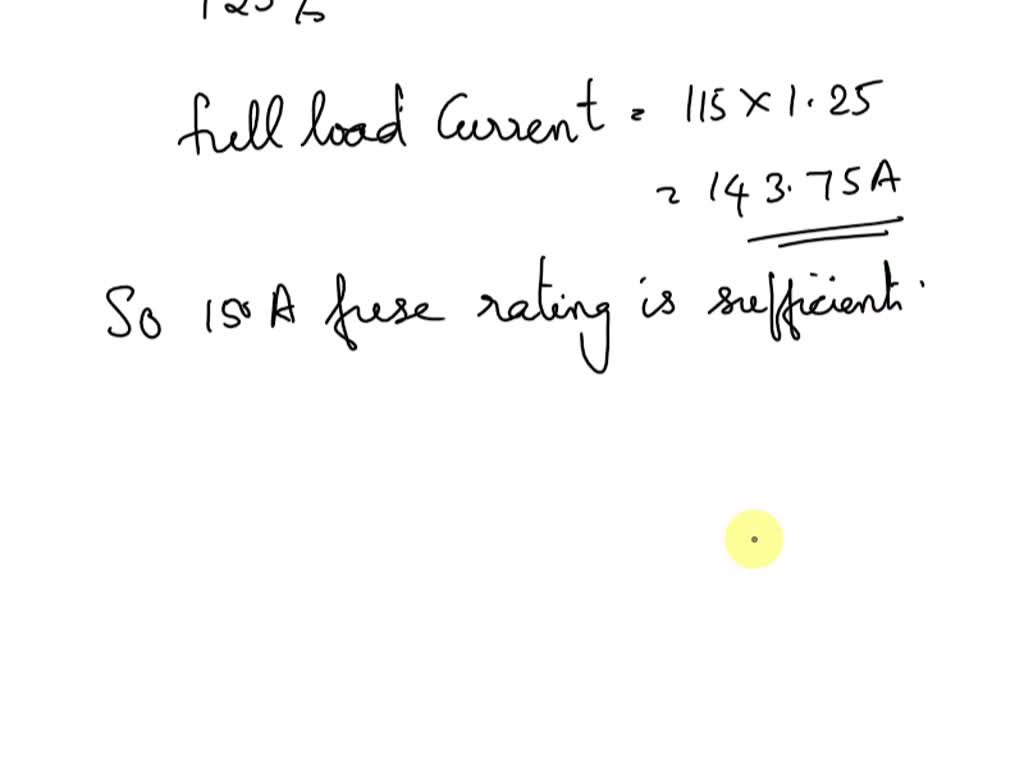 125 %
full load Current = 115 × 1.25
= 143.75A
So 150 A fuse rating is sufficient.